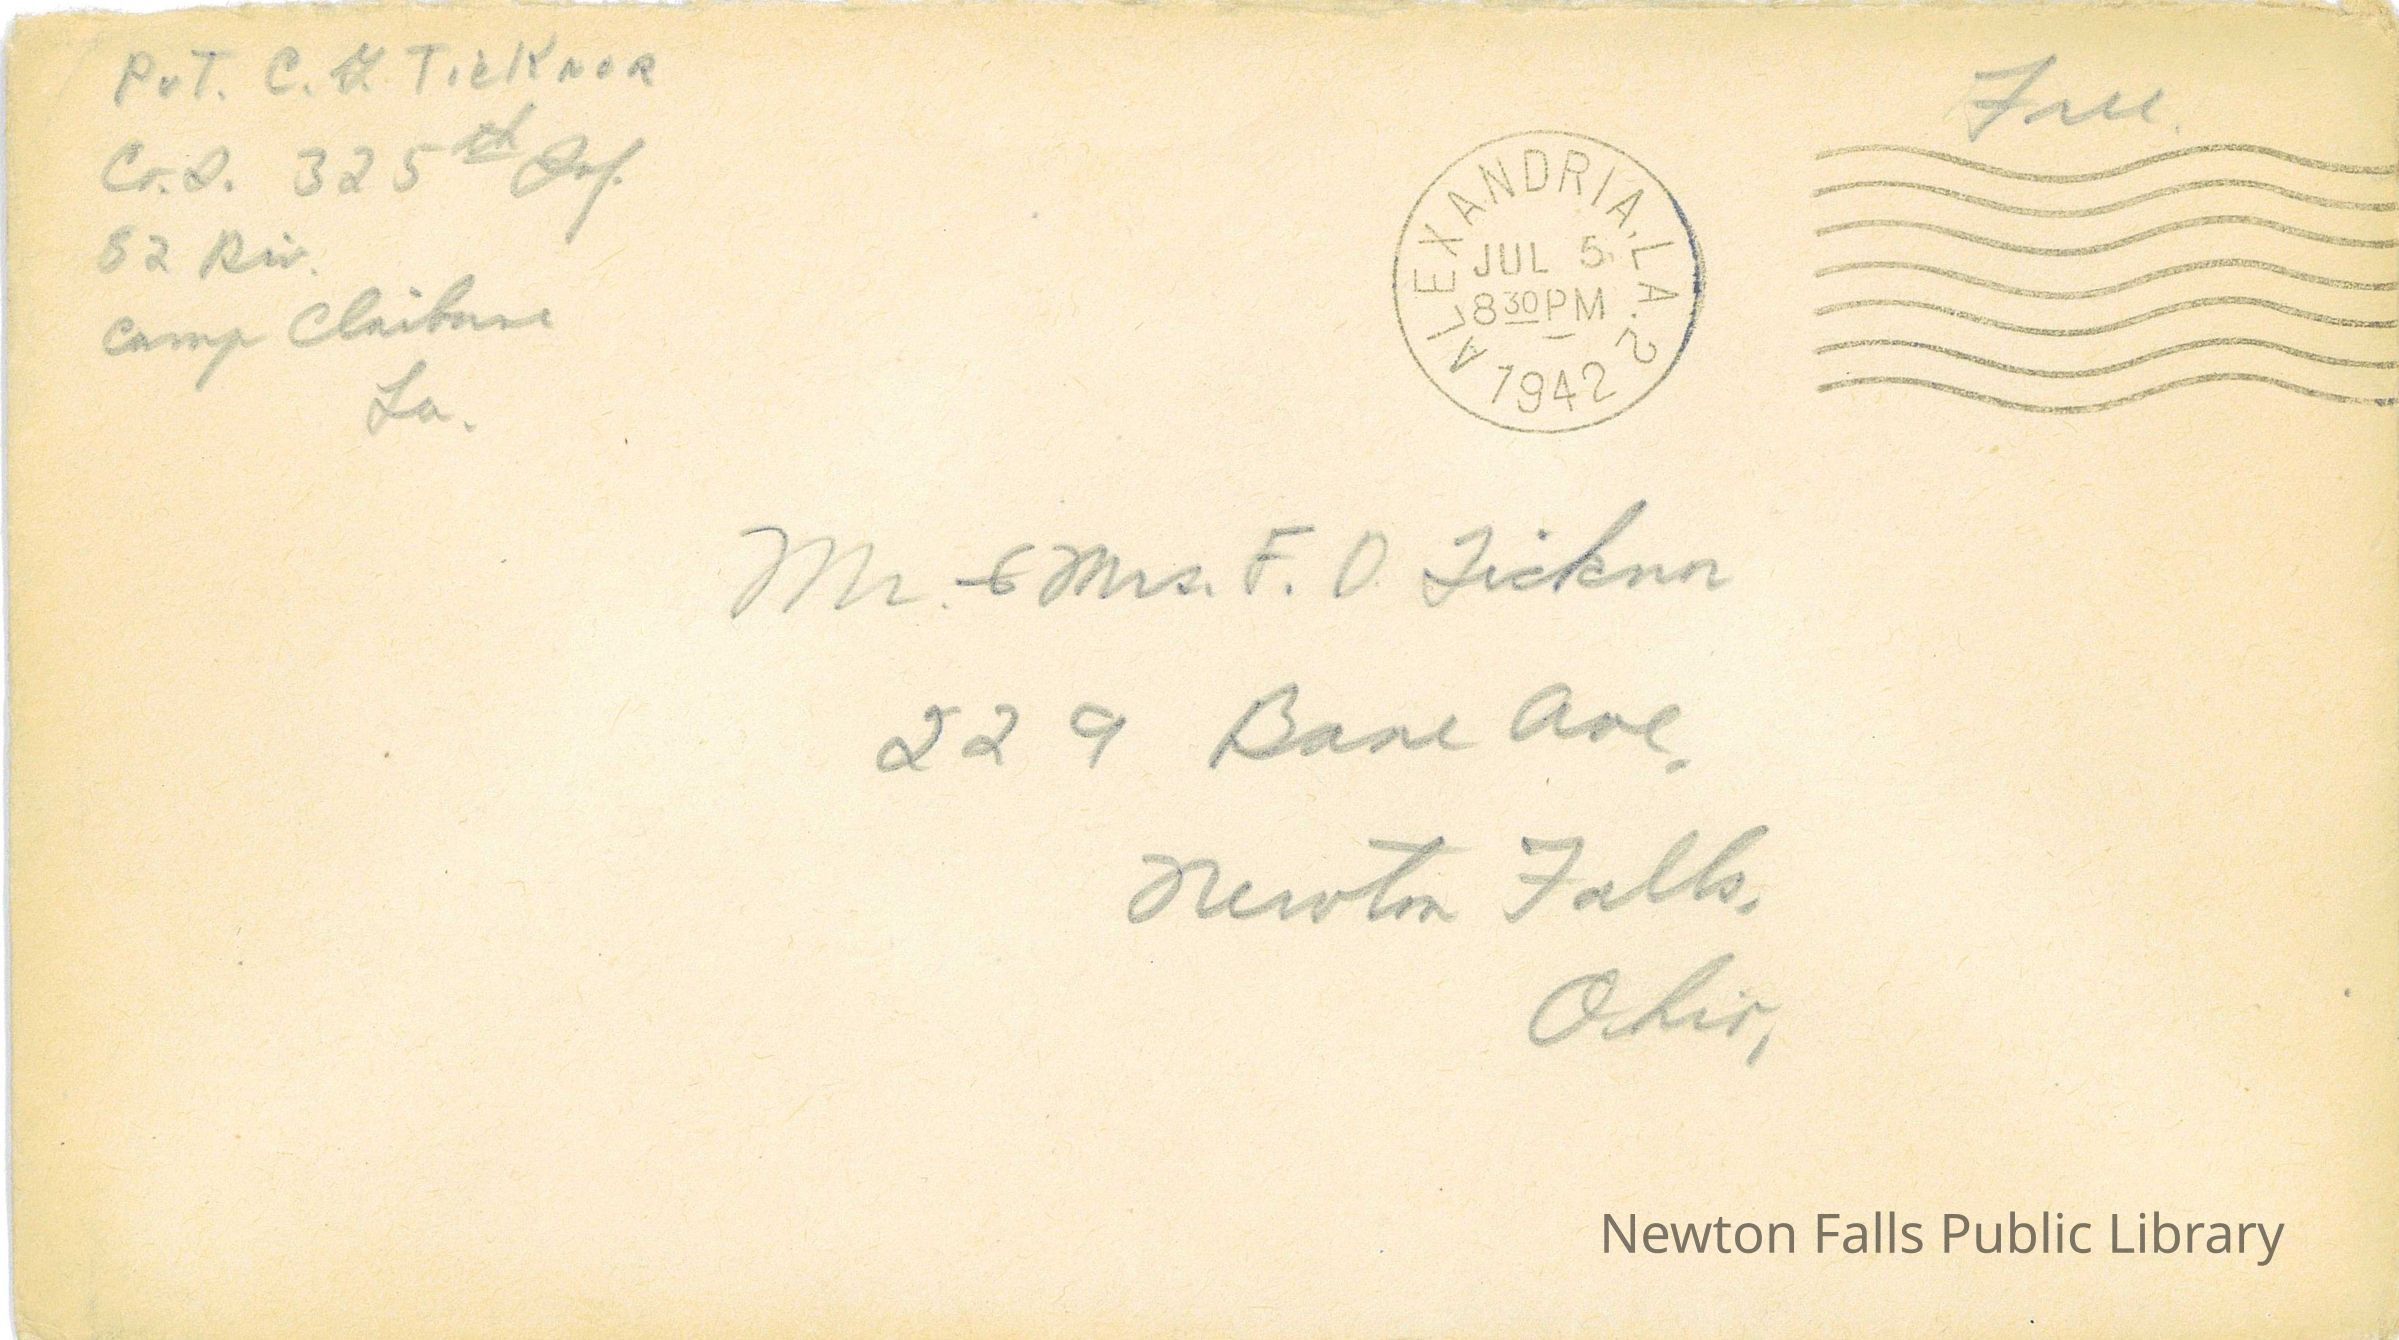 Pvt. C. G. Ticknor
Co. I. 325th Inf.
82 Div.
Camp Claiborne
La.
Free.
ALEXANDRIA, LA. 2
JUL 5
830PM
1942
Mr. & Mrs. F. O. Ticknor
229 Bane Ave.
Newton Falls.
Ohio,
Newton Falls Public Library